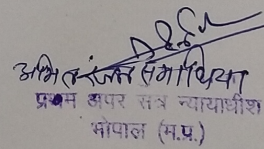 अमित रंजन समाधिया
प्रथम अपर सत्र न्यायाधीश
भोपाल (म.प्र.)